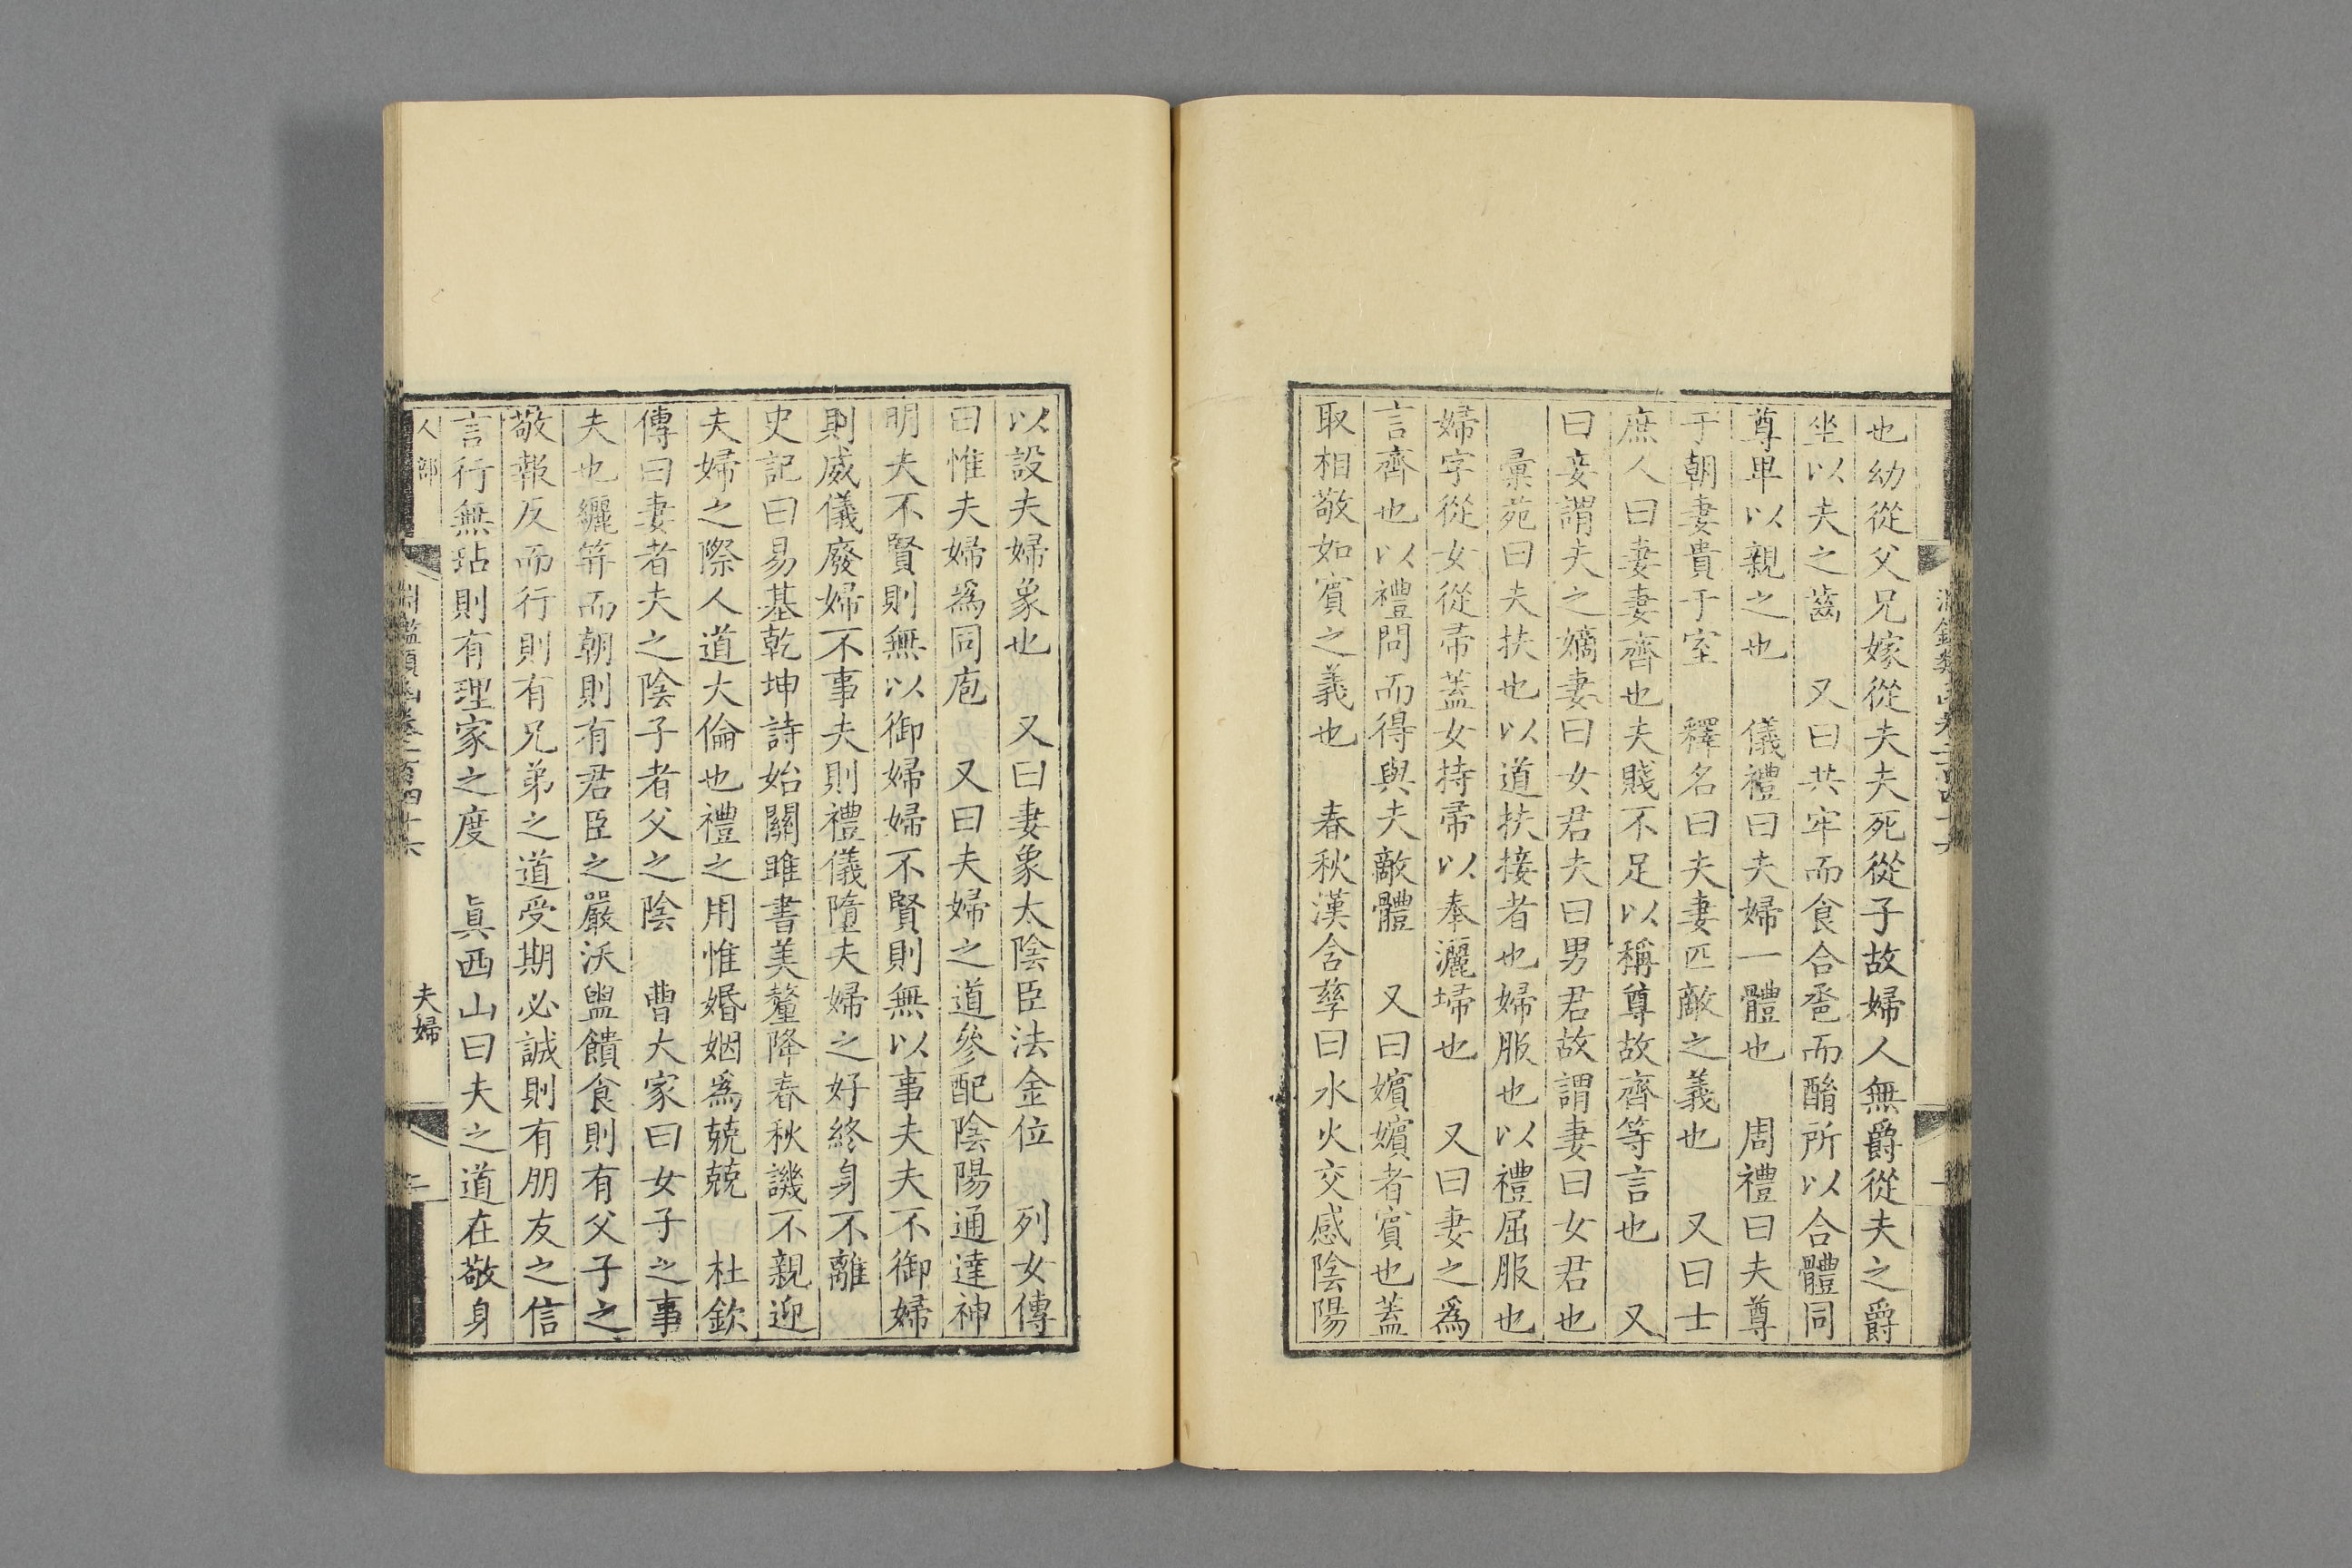 也幼從父兄嫁從夫夫死從子故婦人無爵從夫之爵
坐以夫之齒　又曰共牢而食合卺而酳所以合體同
尊卑以親之也　儀禮曰夫婦一體也　周禮曰夫尊
于朝妻貴于室　釋名曰夫妻匹敵之義也　又曰士
庶人曰妻妻齊也夫賤不足以稱尊故齊等言也　又
曰妾謂夫之嫡妻曰女君夫曰男君故謂妻曰女君也
彙苑曰夫扶也以道扶接者也婦服也以禮屈服也
婦字從女從帚蓋女持帚以奉灑埽也　又曰妻之爲
言齊也以禮問而得與夫敵體　又曰嬪嬪者賓也蓋
取相敬如賓之義也　春秋漢含孳曰水火交感陰陽
以設夫婦象也　又曰妻象太陰臣法金位　列女傳
曰惟夫婦爲同庖　又曰夫婦之道參配陰陽通達神
明夫不賢則無以御婦婦不賢則無以事夫夫不御婦
則威儀廢婦不事夫則禮儀墮夫婦之好終身不離
史記曰易基乾坤詩始關雎書美釐降春秋譏不親迎
夫婦之際人道大倫也禮之用惟婚姻爲兢兢　杜欽
傳曰妻者夫之陰子者父之陰　曹大家曰女子之事
夫也纚笄而朝則有君臣之嚴沃盥饋食則有父子之
敬報反而行則有兄弟之道受期必誠則有朋友之信
言行無玷則有理家之度　眞西山曰夫之道在敬身
人部　淵鑑類函卷二百四十六　夫婦　二